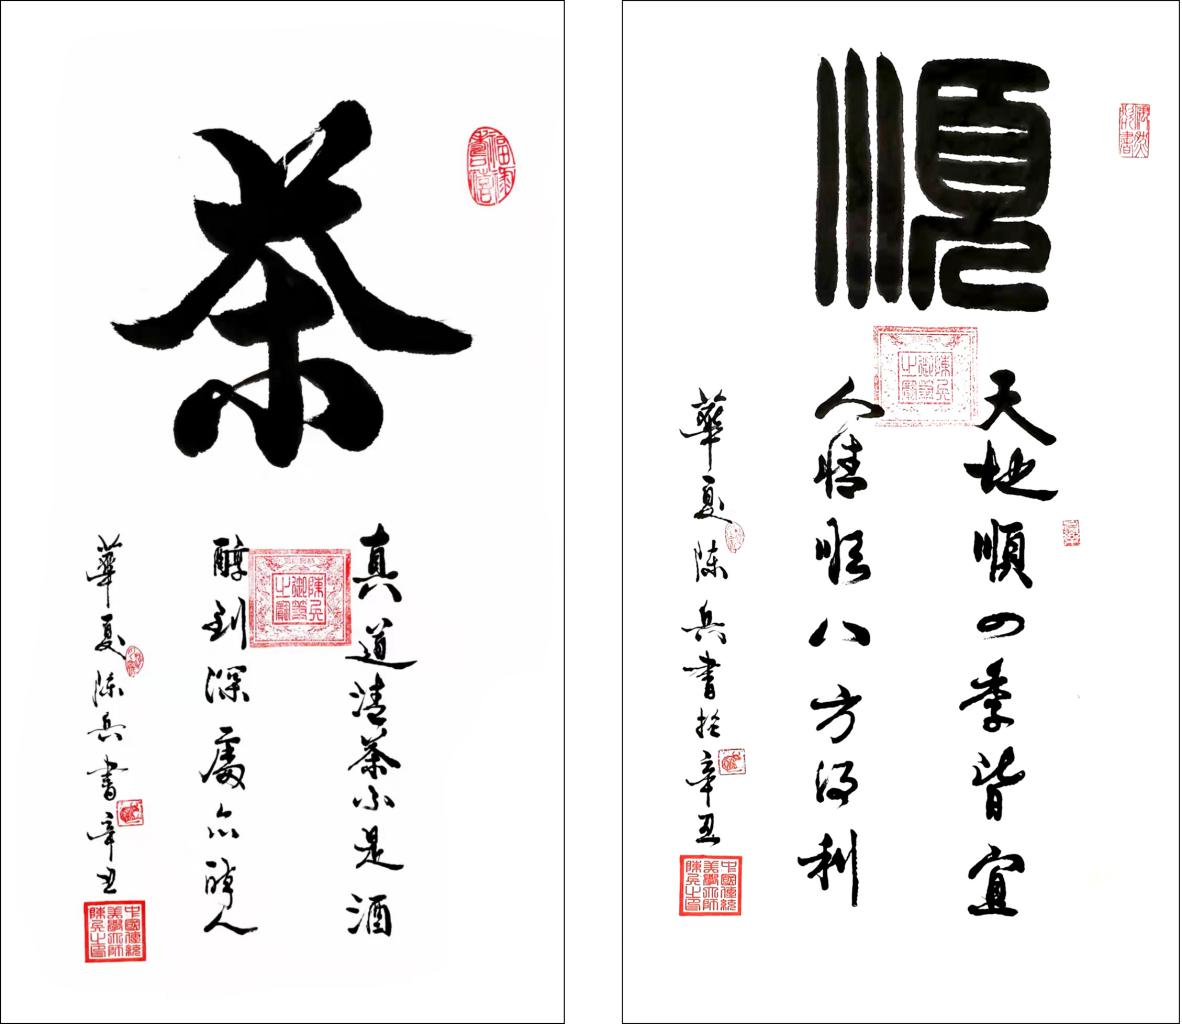 茶
真道清茶不是酒
醇到深處亦醉人
華夏陳兵書辛丑
陳兵御筆之寶
中國傳統美學大師陳兵之印
順
天地順四季皆宜
人情順八方得利
華夏陳兵書於辛丑
陳兵御筆之寶
中國傳統美學大師陳兵之印